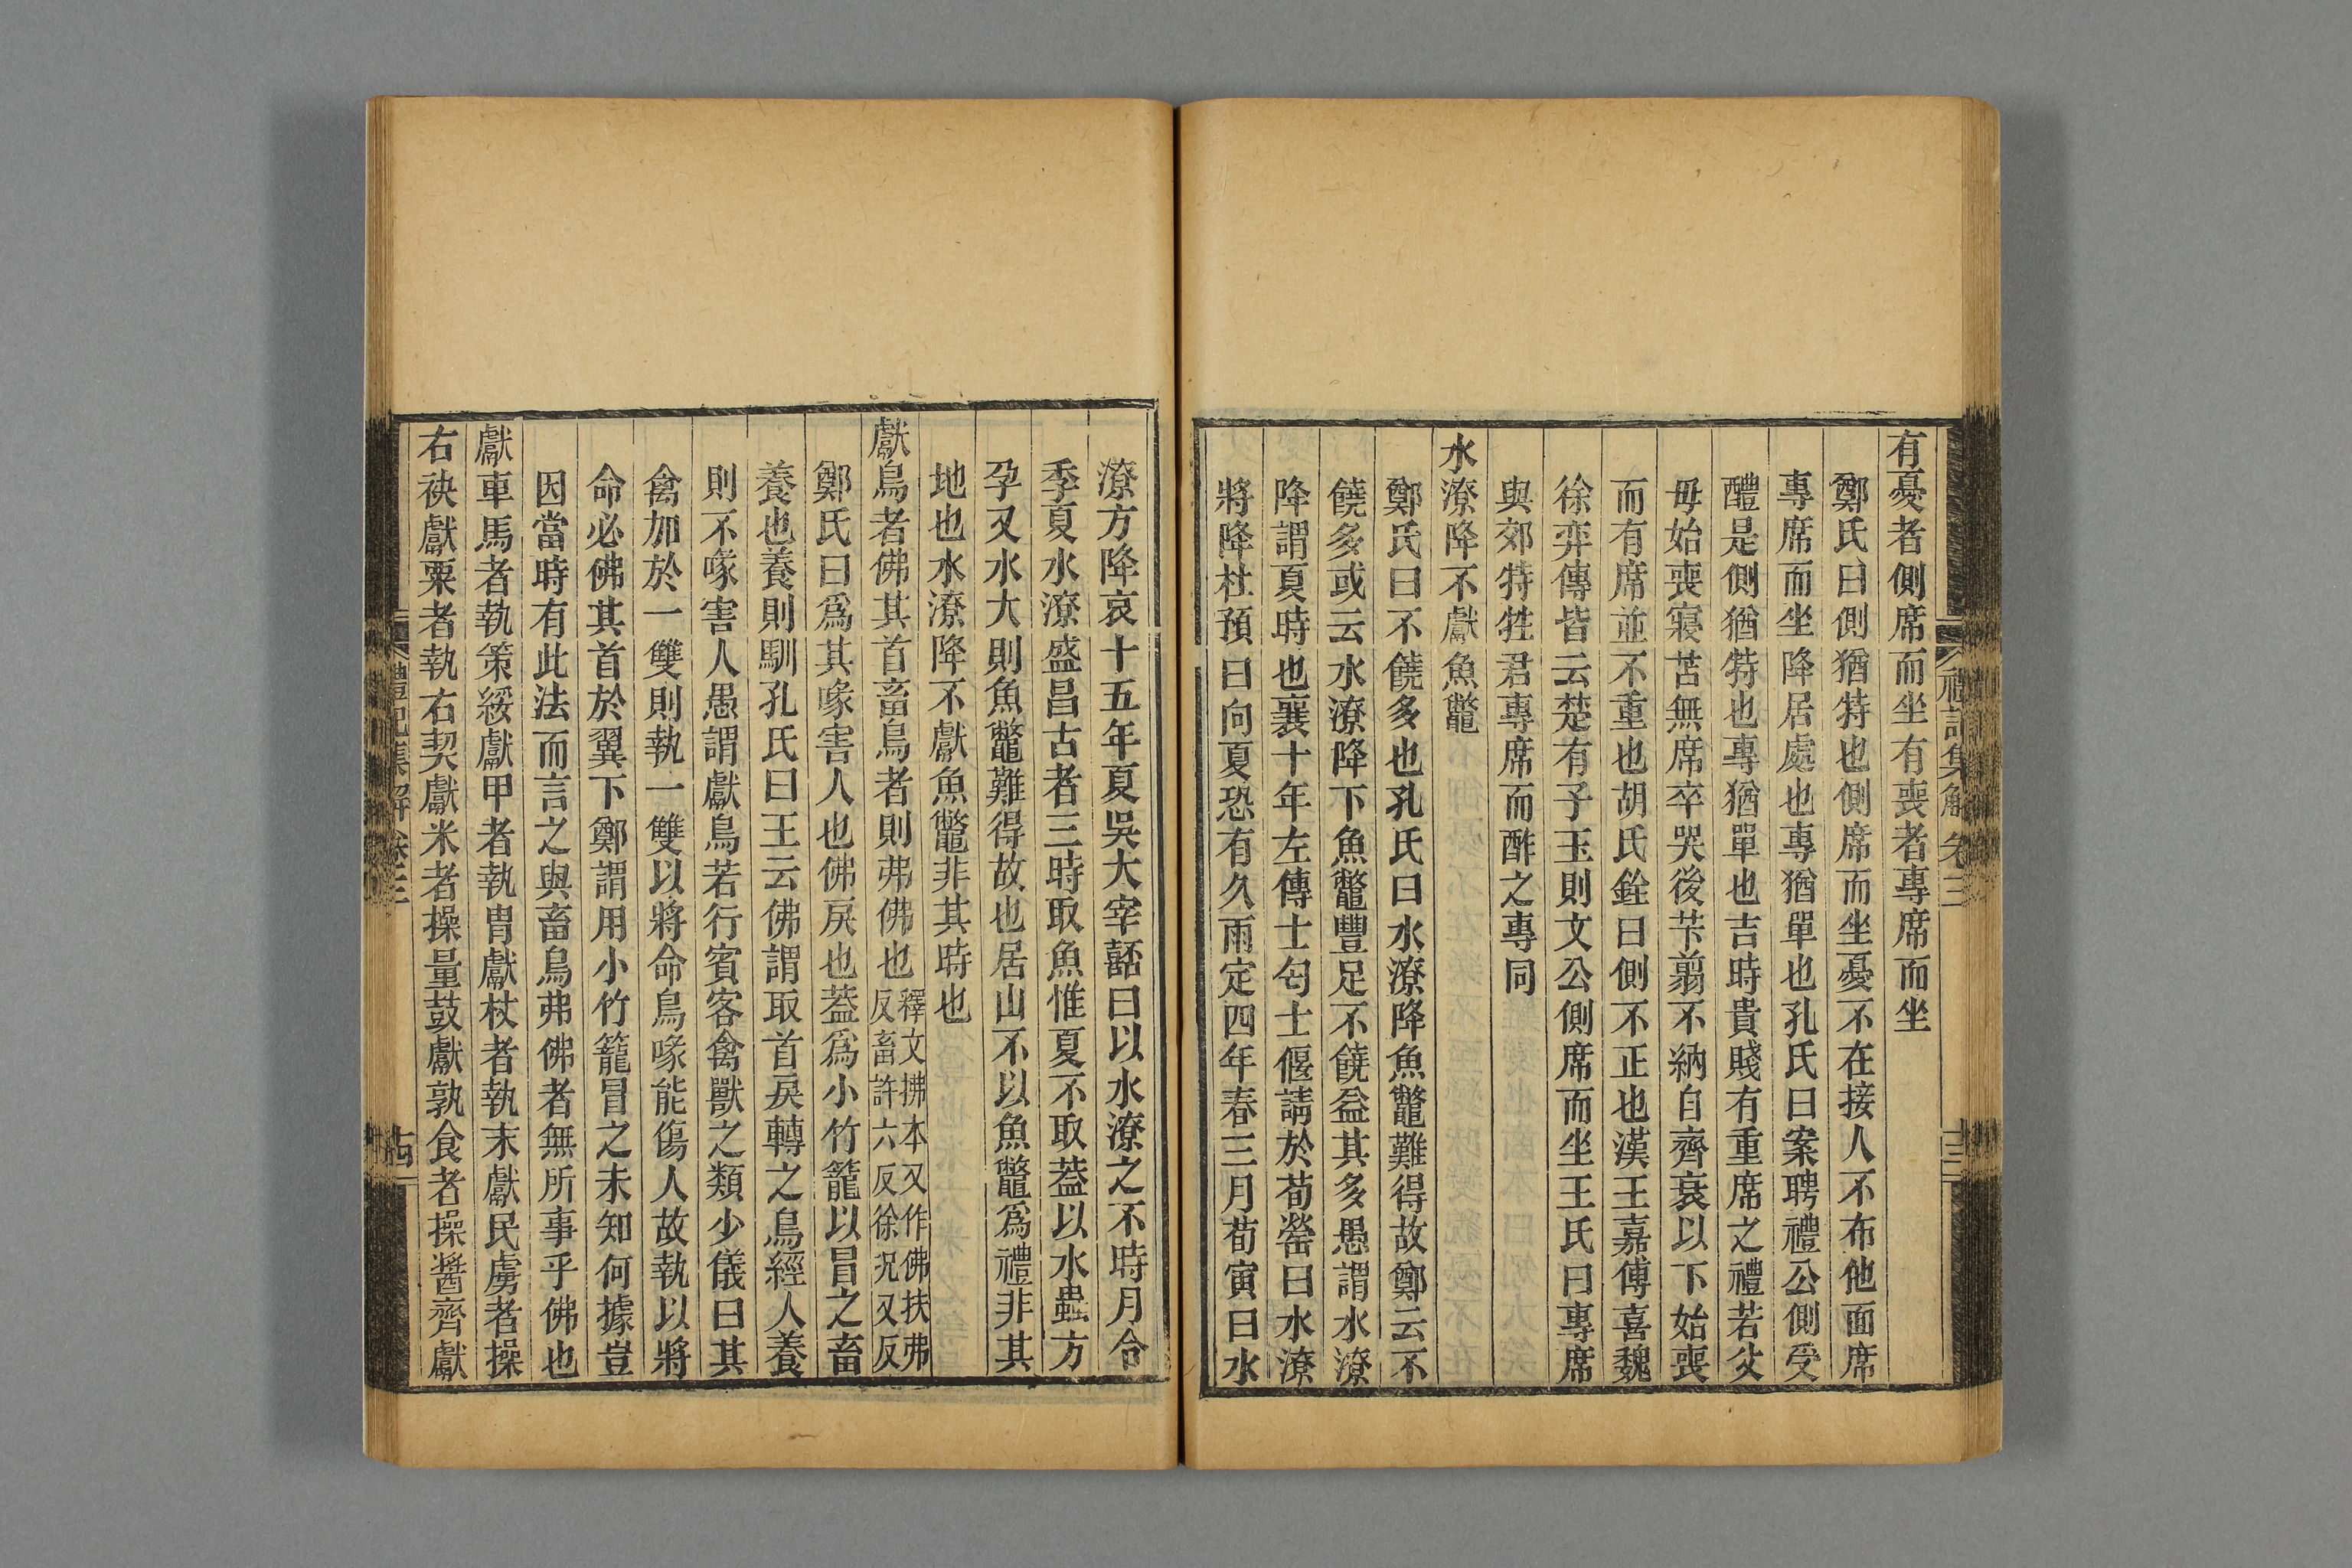 禮記集解 卷三
十三
有憂者側席而坐有喪者專席而坐
鄭氏曰側猶特也側席而坐憂不在接人不布他面席
專席而坐降居處也專猶單也孔氏曰案聘禮公側受
醴是側猶特也專猶單也吉時貴賤有重席之禮若父
毋始喪寢苫無席卒哭後芐翦不納自齊衰以下始喪
而有席並不重也胡氏銓曰側不正也漢王嘉傳喜魏
徐弈傳皆云楚有子玉則文公側席而坐王氏曰專席
與郊特牲君專席而酢之專同
水潦降不獻魚鼈
鄭氏曰不饒多也孔氏曰水潦降魚鼈難得故鄭云不
饒多或云水潦降下魚鼈豐足不饒益其多愚謂水潦
降謂夏時也襄十年左傳士匄士偃請於荀罃曰水潦
將降杜預曰向夏恐有久雨定四年春三月荀寅曰水
潦方降哀十五年夏吳大宰嚭曰以水潦之不時月令
季夏水潦盛昌古者三時取魚惟夏不取葢以水蟲方
孕又水大則魚鼈難得故也居山不以魚鼈爲禮非其
地也水潦降不獻魚鼈非其時也
獻鳥者佛其首畜鳥者則弗佛也釋文拂本又作佛扶弗
反畜許六反徐況又反
鄭氏曰爲其喙害人也佛戾也葢爲小竹籠以冒之畜
養也養則馴孔氏曰王云佛謂取首戾轉之鳥經人養
則不喙害人愚謂獻鳥若行賓客禽獸之類少儀曰其
禽加於一雙則執一雙以將命鳥喙能傷人故執以將
命必佛其首於翼下鄭謂用小竹籠冒之未知何據豈
因當時有此法而言之與畜鳥弗佛者無所事乎佛也
獻車馬者執策綏獻甲者執冑獻杖者執末獻民虜者操
右袂獻粟者執右契獻米者操量鼓獻孰食者操醬齊獻
禮記集解 卷三
十四